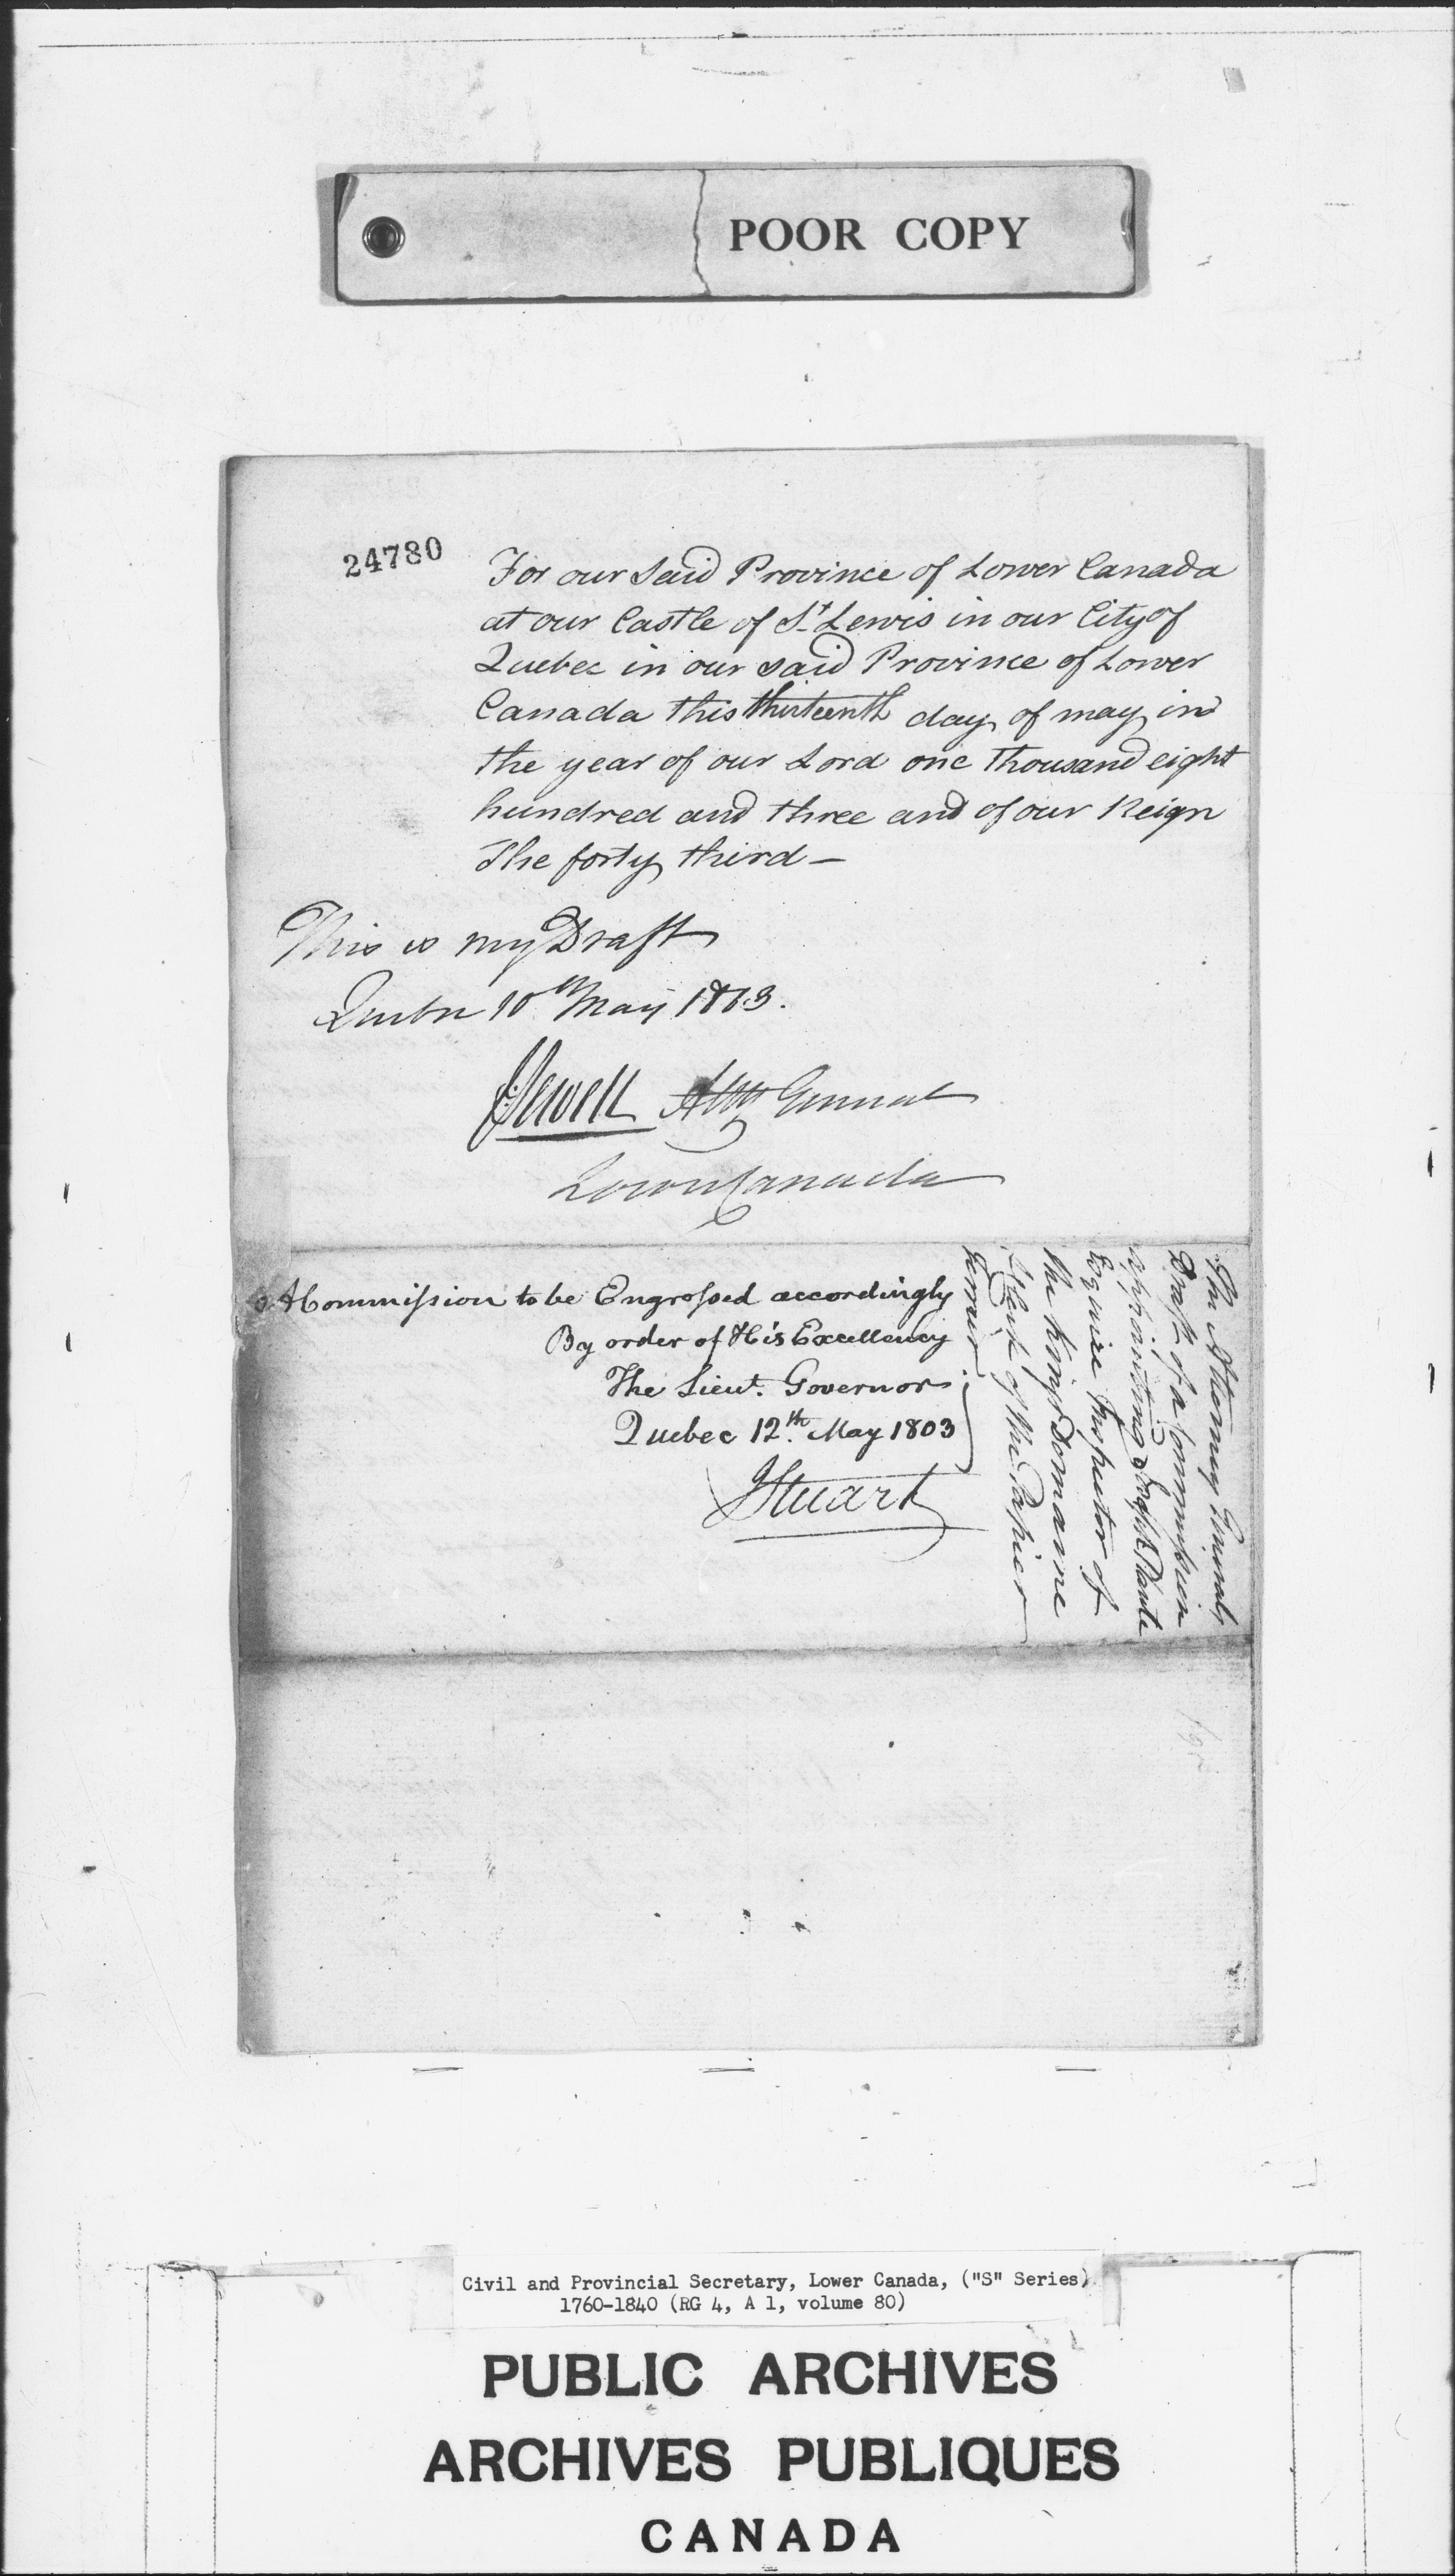 POOR COPY
24780
For our Said Province of Lower Canada
at our Castle of St. Lewis in our City of
Quebec in our said Province of Lower
Canada this thirteenth day of may in
the year of our Lord one thousand eight
hundred and three and of our Reign
The forty third —
This is my Draft
Quebec 10th May 1803.
J Sewell Atty General
Lower Canada
Commission to be Engrossed accordingly
By order of His Excellency
The Lieut. Governor
Quebec 12th. May 1803
J Stuart
The Attorney General,
Draft of a Commission
appointing Joseph Plante
Esquire Inspector of
the Kings Domaine
& Clerk of the Papier
terrier.
Civil and Provincial Secretary, Lower Canada, ("S" Series)
1760-1840 (RG 4, A 1, volume 80)
PUBLIC ARCHIVES
ARCHIVES PUBLIQUES
CANADA